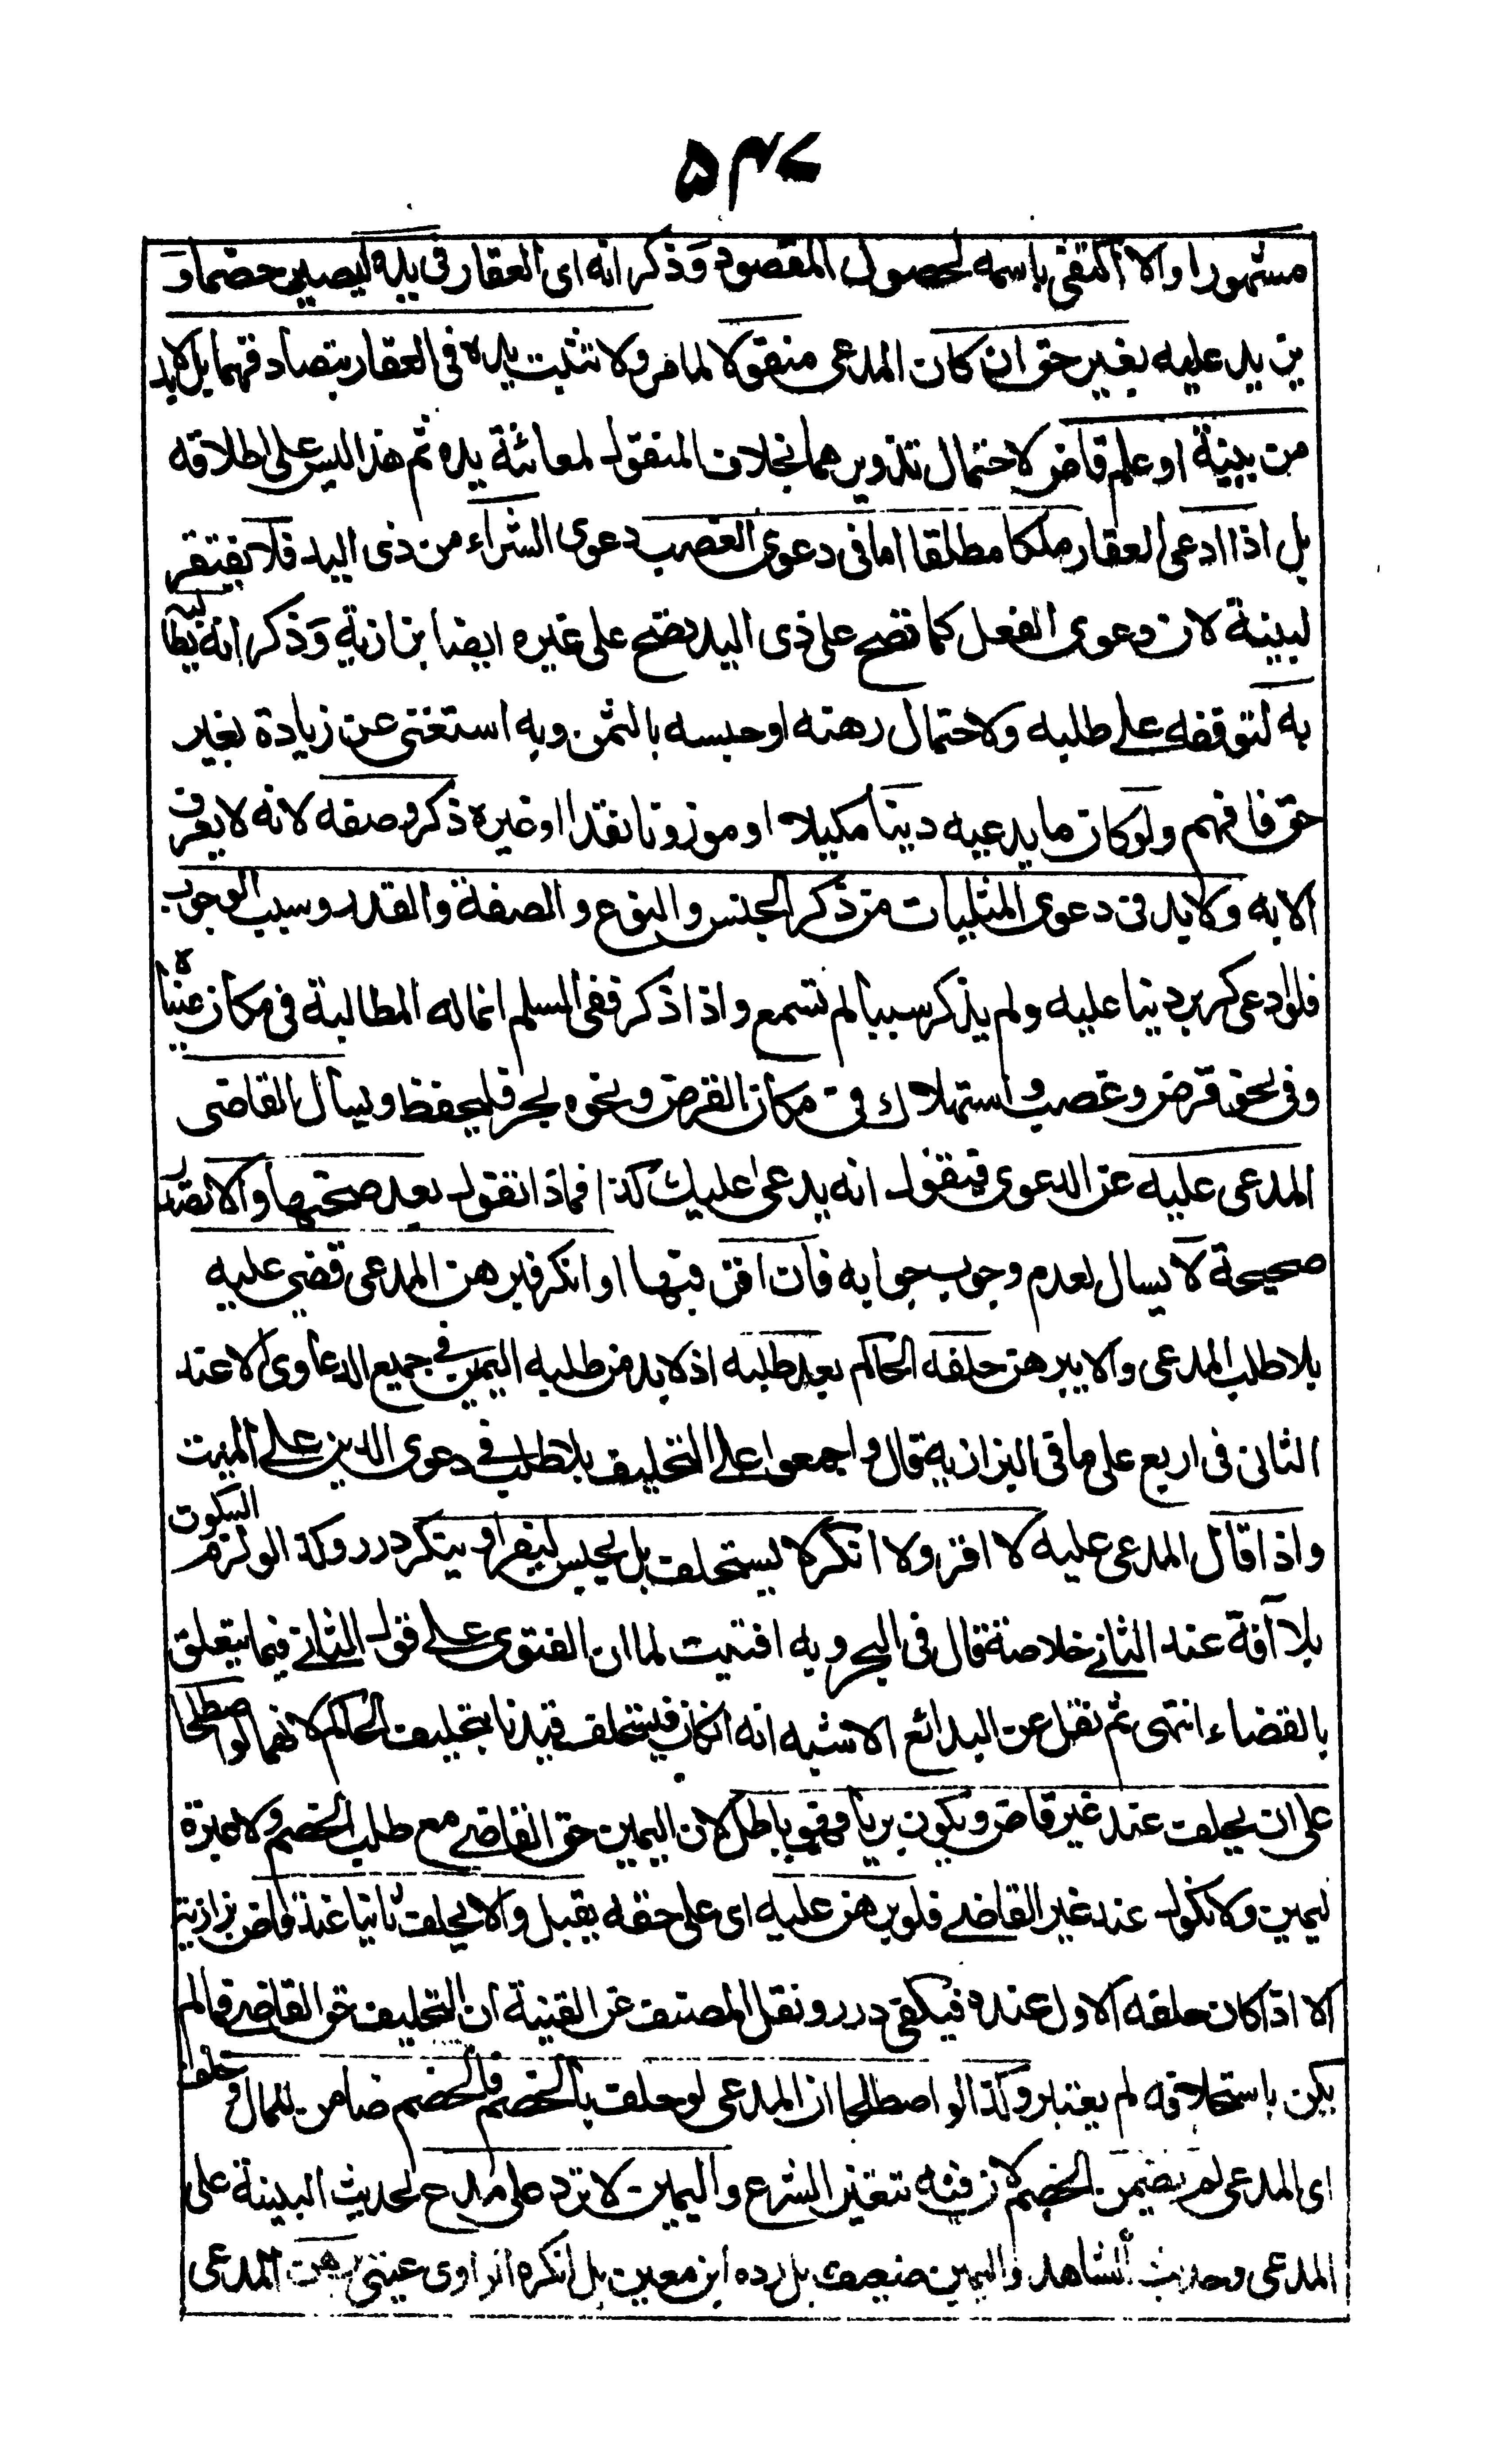 ٥٣٧
مشهورا والا اكتفي باسمه لحصول المقصود وذكر انه اى العقار فى يده ليصير خصما و
يزيد عليه بغير حق ان كان المدعى منقولا لما مر ولا تثبت يده فى العقار بتصادقهما بل لابد
من بينة او علم قاض لاحتمال تزويرهما بخلاف المنقول لمعاينة يده ثم هذا ليس على اطلاقه
بل اذا ادعى العقار ملكا مطلقا اما فى دعوى الغصب دعوى الشراء من ذى اليد فلا يفتقر
لبينة لان دعوى الفعل كما تصح على ذى اليد تصح على غيره ايضا بزازية وذكر انه يطالبه
به لتوقفه على طلبه ولاحتمال رهنه او حبسه بالثمن وبه استغنى عن زيادة بغير
حق فافهم ولو كان ما يدعيه دينا مكيلا او موزونا نقدا او غيره ذكر وصفه لانه لا يعرف
الا به ولابد فى دعوى المثليات من ذكر الجنس والنوع والصفة والقدر وسبب الوجوب
فلو ادعى كر بر دينا عليه ولم يذكر سببا لم تسمع واذا ذكر ففى السلم انما له المطالبة فى مكان عيناه
وفى نحو قرض وغصب واستهلاك فى مكان القرض ونحوه بحر فليحفظ ويسأل القاضى
المدعى عليه عن الدعوى فيقول انه يدعى عليك كذا فماذا تقول بعد صحتها والا تصدر
صحيحة لا يسال لعدم وجوب جوابه فان اقر فبها او انكر فبرهن المدعى قضى عليه
بلا طلب المدعى والا يبرهن حلفه الحاكم بعد طلبه اذ لابد من طلبه اليمين فى جميع الدعاوى الا عند
الثانى فى اربع على ما فى البزازية قال واجمعوا على التحليف بلا طلب فى دعوى الدين على الميت
واذا قال المدعى عليه لا اقر ولا انكر لا يستحلف بل يحبس ليقر او ينكر درر وكذا لو لزم السكوت
بلا آفة عند الثانى خلاصة قال فى البحر وبه افتيت لما ان الفتوى على قول الثانى فيما يتعلق
بالقضاء انتهى ثم نقل عن البدائع الاشبه انه انكار فيستحلف قيدنا بتحليف الحاكم لانهما لو اصطلحا
على ان يحلف عند غير قاض ويكون بريا فهو باطل لان اليمين حق القاضى مع طلب الخصم ولا عبرة
ليمين ولا نكول عند غير القاضى فلو برهن عليه اى على حقه يقبل والا يحلف ثانيا عند قاض بزازية
الا اذا كان حلفه الاول عنده فيكفى درر ونقل المصنف عن القنية ان التحليف حق القاضى فما لم
يكن باستحلافه لم يعتبر وكذا لو اصطلحا ان المدعى لو حلف فالخصم ضامن للمال وحلف
اى المدعى لم يضمن الخصم لان فيه تغيير الشرع واليمين لا ترد على مدع لحديث البينة على
المدعى وحديث الشاهد واليمين ضعيف بل رده ابن معين بل انكره الراوى عينى برهن المدعى